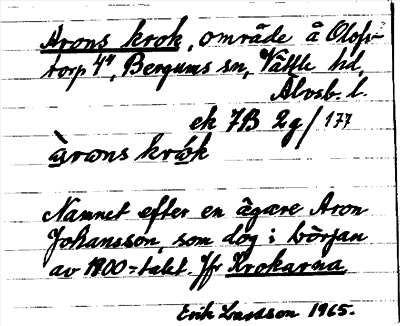 Arons krok, område å Olofs-
torp 4⁴, Bergums sn, Vättle hd,
Älvsb. l.
ek 7B 2g/177
àrωns krώk
Namnet efter en ägare Aron
Johansson, som dog i början
av 1900-talet. Jfr Krokarna.
Erik Larsson 1965.